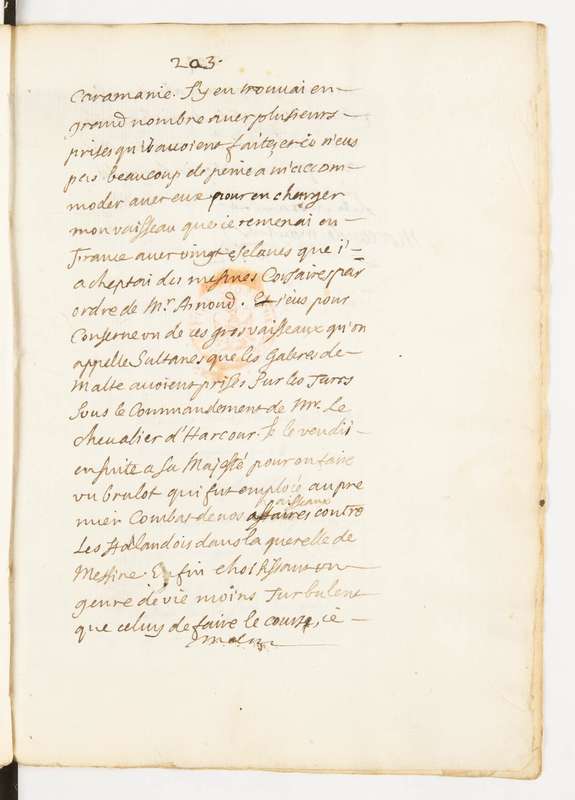 203.
Caramanie. J'y en trouvai en
grand nombre aver plusieurs
prises qu'ils avoient faites et ie n'eus
pas beaucoup de peine a m'accom-
moder aver eux pour en charger
mon vaisseau que ie remenai en
France aver vingt Esclaves que i'
acheptai des mesmes Corsaires par
ordre de Mr. Arnoud. Et i'eus pour
Conserve un de ces gros vaisseaux qu'on
appelle Sultanes que les Galeres de
Malte avoient prises Sur les Turcs
Sous le Commandement de Mr. Le
Chevalier d'Harcour. Je le vendis
ensuite a Sa Majesté pour en faire
vn brulot qui fut emploée au pre
mier Combat de nos affaires contre
aisseaux
Les Hollandois dans la querelle de
Messine. Enfin choisissant un
genre de vie moins Turbulent
que celuy de faire le course, ie